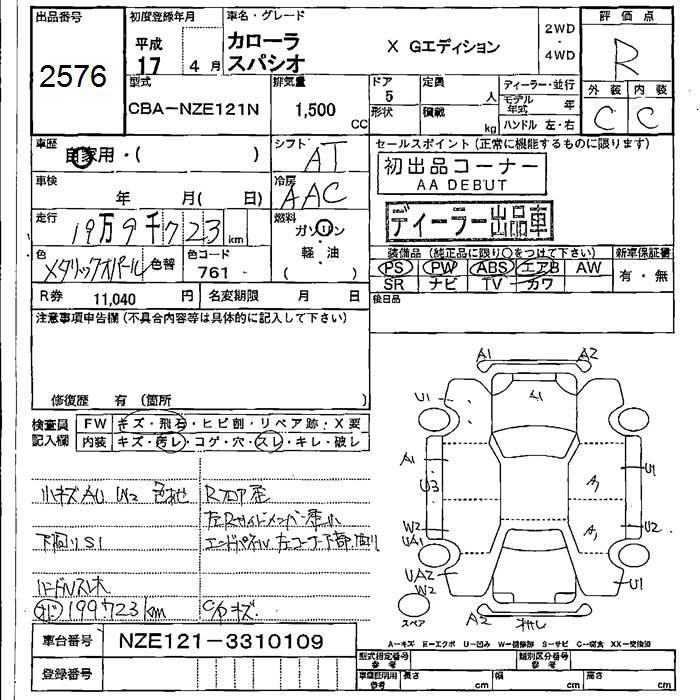 出品番号
2576
初度登録年月
平成
17
4 月
車名・グレード
カローラ
スパシオ
X Gエディション
2WD
・
4WD
評価点
R
外装 内装
C C
型式
CBA-NZE121N
排気量
1,500 CC
ドア
5
形状
定員
人
積載
kg
ディーラー・並行
モデル年式 年
ハンドル 左・右
車歴
自家用・( )
シフト
AT
車検
年 月( 日)
冷房
AAC
走行
19万9千723 km
燃料
ガソリン
軽・油
( )
色
メタリックオパール
色替
色コード
761
R券 11,040 円
名変期限 月 日
セールスポイント (正常に機能するものに限ります)
初出品コーナー
AA DEBUT
ディーラー出品車
装備品(純正品に限り○をつけて下さい)
新車保証書
PS PW ABS エアB AW
SR ナビ TV カワ
有・無
後日品
注意事項申告欄(不具合内容等は具体的に記入して下さい)
修復歴 有(箇所 )
検査員
記入欄
FW キズ・飛石・ヒビ割・リペア跡・X要
内装 キズ・汚レ・コゲ・穴・スレ・キレ・破レ
小キズ AU W2 色地
下回り S1
ハンドルスレ
オド 199723 km
Rフロア歪
エンドパネル 左コーナー下部
キズ
A1
A2
U1
A1
A1
U3
U1
A
W2
UA1
A
U2
UA2
W2
U1
A2
スペア
A-キズ E-エクボ U-凹み W-補修跡 S-サビ C-腐食 XX-交換済
車台番号
NZE121-3310109
登録番号
型式指定番号
参考
類別区分番号
参考
車庫証明用
参考
長さ cm
幅 cm
高さ cm